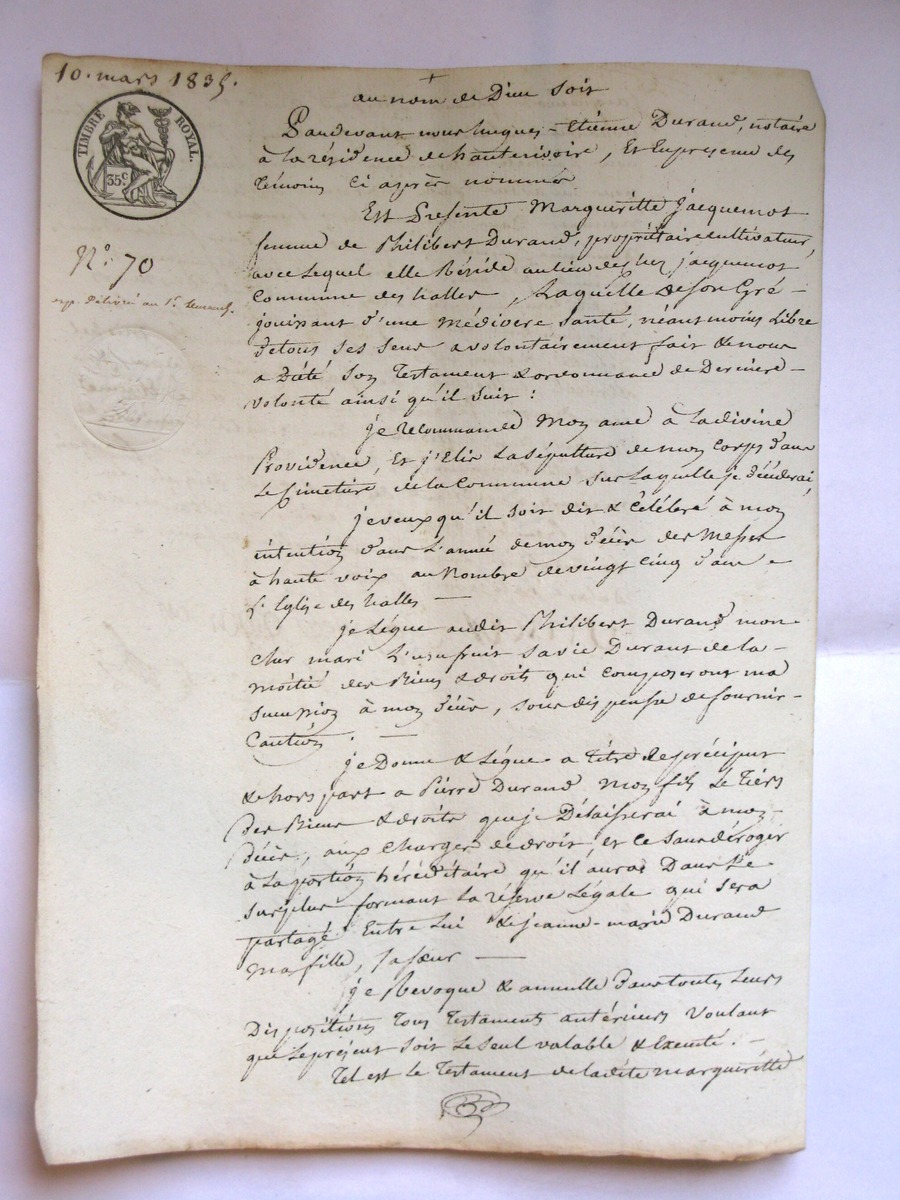 10. mars 1835.
TIMBRE ROYAL.
35 c.
N.° 70
exp. délivré au 1.er
au nom de Dieu soit
Pardevant nous hugues-Etienne Durand, notaire
à la résidence de hauterivoire, Et En présence des
témoins ci après nommés
Est Présente Margueritte jacquemot
femme de Philibert Durand, propriétaire cultivateur,
avec Lequel elle Réside au lieu de chez jacquemot
Commune des halles, Laquelle de son Gré
jouissant d'une médiocre santé, néantmoins Libre
de tous ses sens a volontairement fait & nous
a dicté son testament & ordonnance de Dernière
volonté ainsi qu'il suit :
je recommande mon ame à la divine
Providence, Et j'Elis La sépulture de mon corps dans
Le Cimetière de la Commune sur Laquelle je décéderai,
je veux qu'il soit dit & Célébré à mon
intention dans L'année de mon décès des Messes
à haute voix au Nombre de vingt cinq dans
L'Eglise des halles —
je Lègue audit Philibert Durand mon
cher mari L'usufruit sa vie Durant de la
moitié des Biens & droits qui composeront ma
succession à mon décès, sous dispense de fournir
Caution. —
je Donne & Lègue a titre de préciput
& hors part a Pierre Durand mon fils Le tiers
des Biens & droits que je Délaisserai à mon
Décès, aux charges de droit et ce sans déroger
à La portion héréditaire qu'il aura Dans Le
surplus formant La réserve Légale qui sera
partagé Entre Lui & jeanne-marie Durand
ma fille, sa sœur —
je Revoque & annulle dans toutes Leurs
Dispositions tous testaments antérieurs voulant
que Le présent soit Le seul valable & Exécuté. —
tel est Le testament de ladite margueritte